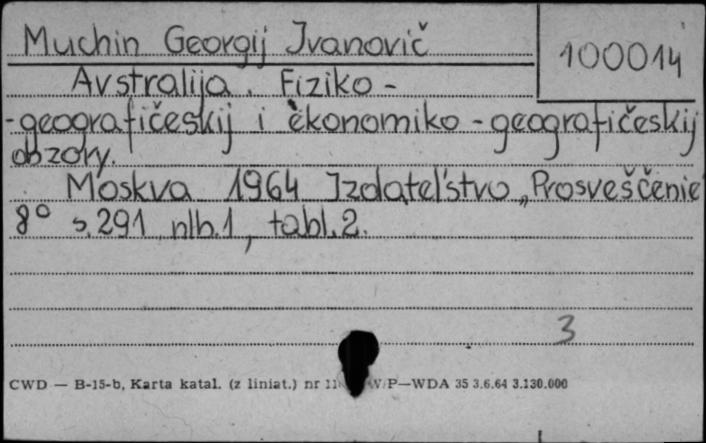 Muchin Georgij Ivanovič
100014
Avstralija. Fiziko-
-geografičeskij i èkonomiko-geografičeskij
obzory.
Moskva 1964 Izdatel'stvo „Prosveščenie
8° s. 291 nlb. 1, tabl. 2.
3
CWD — B-15-b, Karta katal. (z liniat.) nr P—WDA 35 3.6.64 3.130.000